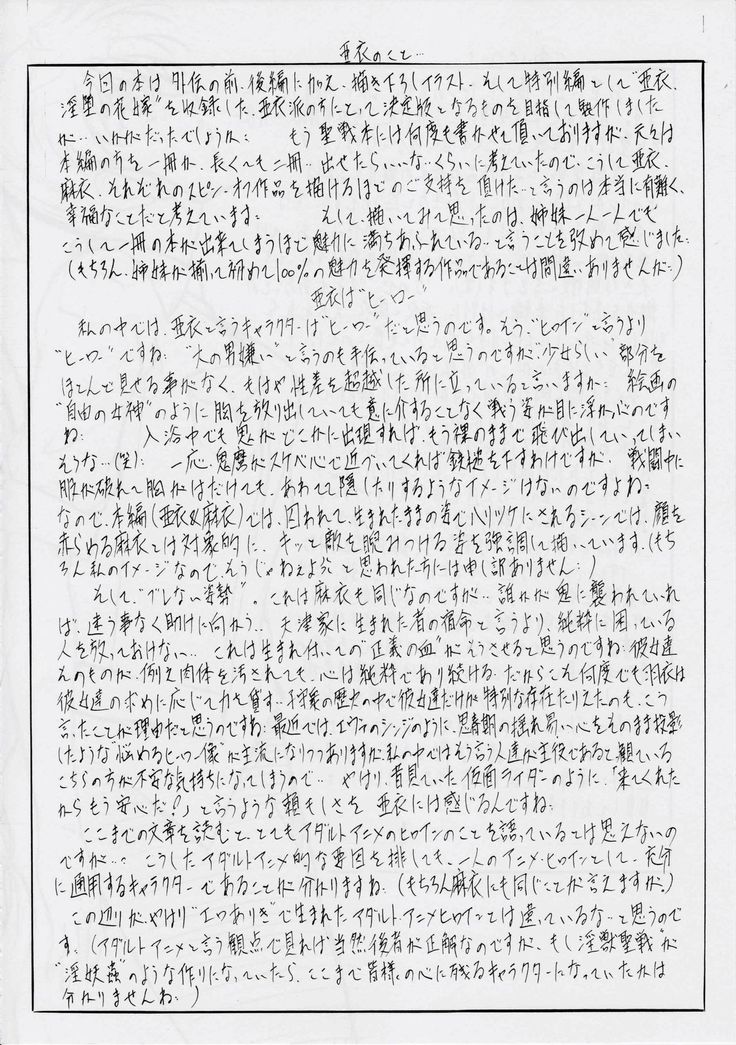 亜衣のこと…
今回の本は外伝の前、後編に加え、描き下ろしイラスト、そして特別編として"亜衣、
淫塾の花嫁"を収録した、亜衣派の方にとって決定版となるものを目指して製作しました
が…いかがだったでしょうか… もう聖戦本には何度も書かせて頂いておりますが、元々は
本編の方を一冊か、長くても二冊…出せたらいいな…くらいに考えていたので、こうして亜衣、
麻衣、それぞれのスピン・オフ作品を描けるほどのご支持を頂けた…と言うのは本当に有難く、
幸福なことだと考えています… そして、描いてみて思ったのは、姉妹一人一人でも
こうして一冊の本が出来てしまうほど魅力に満ちあふれている…と言うことを改めて感じました…
(もちろん、姉妹が揃って初めて100%の魅力を発揮する作品であることは間違いありませんが…)
亜衣は"ヒーロー"
私の中では、亜衣と言うキャラクターは"ヒーロー"だと思うのです。もう、"ヒロイン"と言うより
"ヒーロー"ですね… "大の男嫌い"と言うのも手伝っていると思うのですが、"少女らしい"部分を
ほとんど見せる事がなく、もはや性差を超越した所に立っていると言いますか… 絵画の
"自由の女神"のように胸を放り出していても意に介することなく戦う姿が目に浮かぶのです
ね… 入浴中でも鬼がどこかに出現すれば、もう裸のままで飛び出していってしまい
そうな…(笑)… 一応、鬼麿がスケベ心で近づいてくれば鉄槌を下すわけですが、戦闘中に
服が破れて胸がはだけても、あわてて隠したりするようなイメージはないのですよね…
なので、本編(亜衣&麻衣)では、囚われて、生まれたままの姿でハリツケにされるシーンでは、顔を
赤らめる麻衣とは対象的に、キッと敵を睨みつける姿を強調して描いています。(もち
ろん私のイメージなので、そうじゃねぇよ…と思われた方には申し訳ありません…)
そして"ブレない姿勢"。これは麻衣も同じなのですが…誰かが鬼に襲われていれ
ば、迷う事なく助けに向かう…天津家に生まれた者の宿命と言うより、純粋に困っている
人を放っておけない…これは生まれ付いての"正義の血"がそうさせると思うのですね…彼女達
そのものが、例え肉体を汚されても、心は純粋であり続ける…だからこそ何度でも羽衣は
彼女達の求めに応じて力を貸す…の歴史の中で彼女達だけが特別な存在たりえたのも、こう
言ったことが理由だと思うのですね…最近では、エヴァのシンジのように、思春期の揺れ易い心をそのまま投影
したような"悩めるヒーロー像"が主流になりつつありますが、私の中ではそう言う人達が主役であると、観ている
こちらの方が不安な気持ちになってしまうので… やはり、昔見ていた仮面ライダーのように、「来てくれた
からもう安心だ!」と言うような頼もしさを亜衣には感じるんですね…
ここまでの文章を読むと、とてもアダルトアニメのヒロインのことを語っているとは思えないの
ですが…。こうしたアダルトアニメ的な要因を排しても、一人のアニメ・ヒロインとして、充分
に通用するキャラクターであることが分かりますね…(もちろん麻衣にも同じことが言えますが。)
この辺りが、やはり"エロありき"で生まれたアダルトアニメヒロインとは違っているな…と思うので
す。(アダルトアニメと言う観点で見れば当然後者が正解なのですが、もし"淫獣聖戦"が
"淫妖蟲"のような作りになっていたら、ここまで皆様の心に残るキャラクターになっていたかは
分かりませんね…)